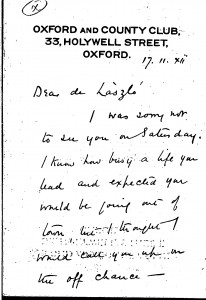 OXFORD AND COUNTY CLUB,
33, HOLYWELL STREET,
OXFORD.
17. 11. xii
Dear de László
I was sorry not
to see you on Saturday.
I know how busy a life you
lead and expected you
would be going out of
town but I thought I
would call you up on
the off chance —